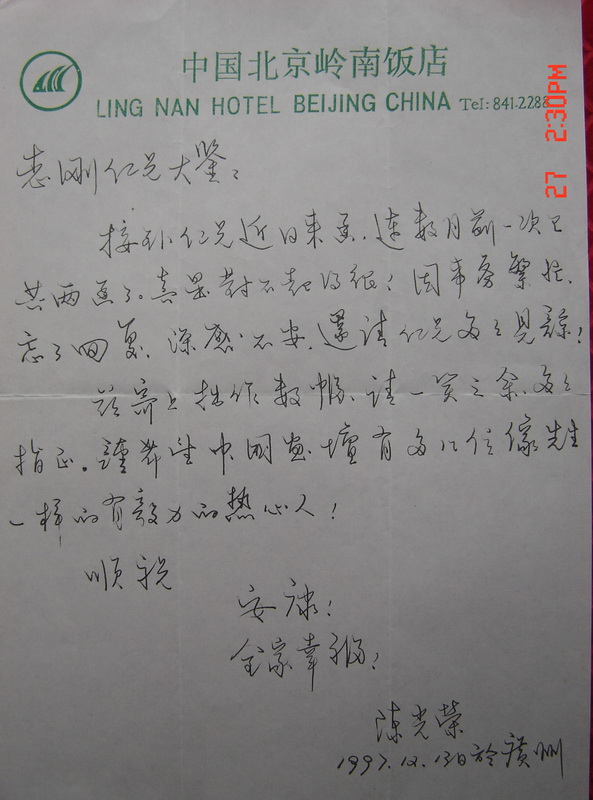 中国北京岭南饭店
LING NAN HOTEL BEIJING CHINA Tel: 841.2288
27 2:30PM
志刚仁兄大鑒：
接到仁兄近日来函，连数月前一次已
共两函了。真是对不起得很！因事务繁忙，
忘了回复，深感不安，還请仁兄多多見諒！
兹寄上拙作数幀，请一笑之余，多多
指正。謹希望中国画壇有多几位像先生
一样的有毅力的热心人！
顺祝
安康！
全家幸福！
陈光榮
1997.12.13日於廣州